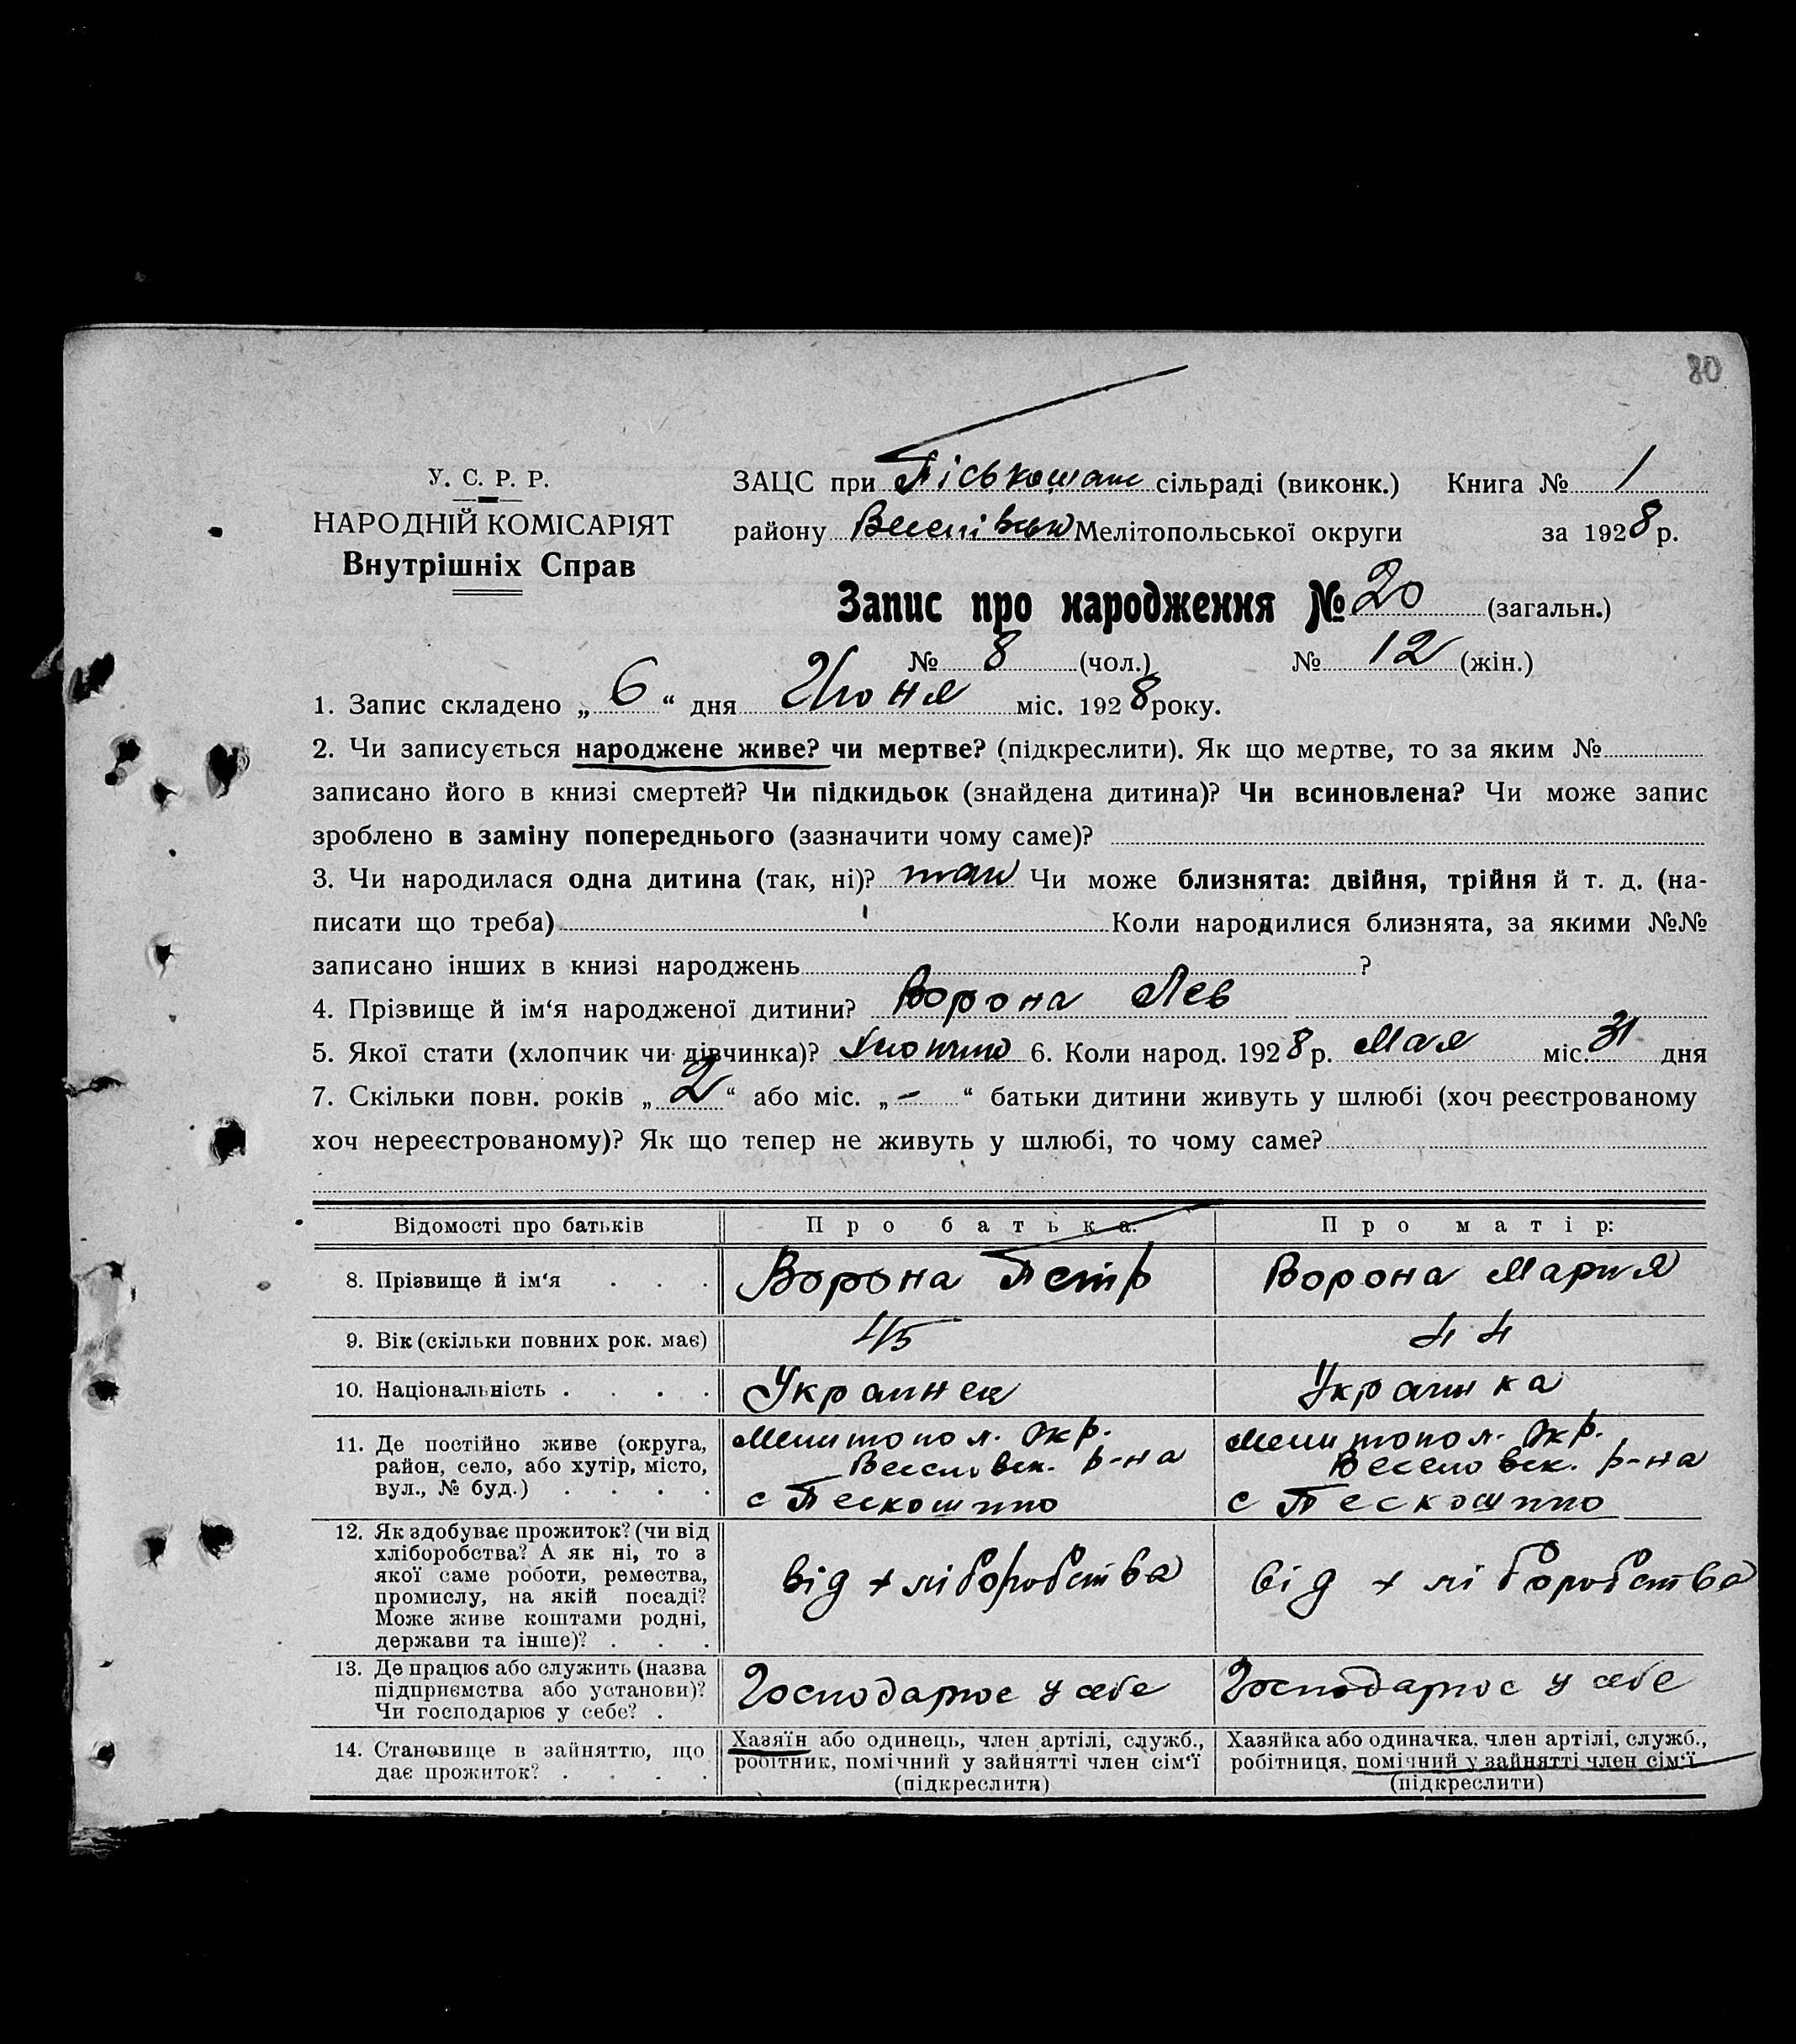 80
У. С. Р. Р.
НАРОДНІЙ КОМІСАРІЯТ
Внутрішніх Справ
ЗАЦС при Піськошан сільраді (виконк.) Книга № 1
району Мелітопольської округи за 1928 р.
Запис про народження № 20 (загальн.)
№ 8 (чол.) № 12 (жін.)
1. Запис складено „ 6 “ дня Июня міс. 1928 року.
2. Чи записується народжене живе? чи мертве? (підкреслити). Як що мертве, то за яким №
записано його в книзі смертей? Чи підкидьок (знайдена дитина)? Чи всиновлена? Чи може запис
зроблено в заміну попереднього (зазначити чому саме)?
3. Чи народилася одна дитина (так, ні)? так Чи може близнята: двійня, трійня й т. д. (на-
писати що треба) Коли народилися близнята, за якими №№
записано інших в книзі народжень ?
4. Прізвище й ім‘я народженої дитини? Ворона Лев
5. Якої стати (хлопчик чи дівчинка)? 6. Коли народ. 1928 р. Мая міс. 31 дня
7. Скільки повн. років „ 2 “ або міс. „ – “ батьки дитини живуть у шлюбі (хоч реєстрованому
хоч нереєстрованому)? Як що тепер не живуть у шлюбі, то чому саме?
Відомості про батьків Про батька: Про матір:
8. Прізвище й ім‘я . . . Ворона Петр Ворона Мария
9. Вік (скільки повних рок. має) 45 44
10. Національність . . . . Украинец Украинка
11. Де постійно живе (округа,
район, село, або хутір, місто,
вул., № буд.) . . . .
Мелитопол. Окр.
Веселовск. р-на
с Пескошино
Мелитопол. Окр.
Веселовск. р-на
с Пескошино
12. Як здобуває прожиток? (чи від
хліборобства? А як ні, то з
якої саме роботи, ремества,
промислу, на якій посаді?
Може живе коштами родні,
держави та інше)? . . .
від хліборобства
від хліборобства
13. Де працює або служить (назва
підприємства або установи)?
Чи господарює у себе? .
Господарює у себе
Господарює у себе
14. Становище в зайняттю, що
дає прожиток? . . . .
Хазяїн або одинець, член артілі, служб.,
робітник, помічний у зайнятті член сім‘ї
(підкреслити)
Хазяйка або одиначка, член артілі, служб.,
робітниця, помічний у зайнятті член сім‘ї
(підкреслити)